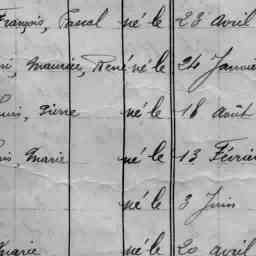 François, Pascal né le 23 Avril
ri, Maurice, René né le 24 Janvie
ouis, Pierre né le 18 août
is, Marie né le 13 Février
né le 3 Juin
Marie né le 20 avril